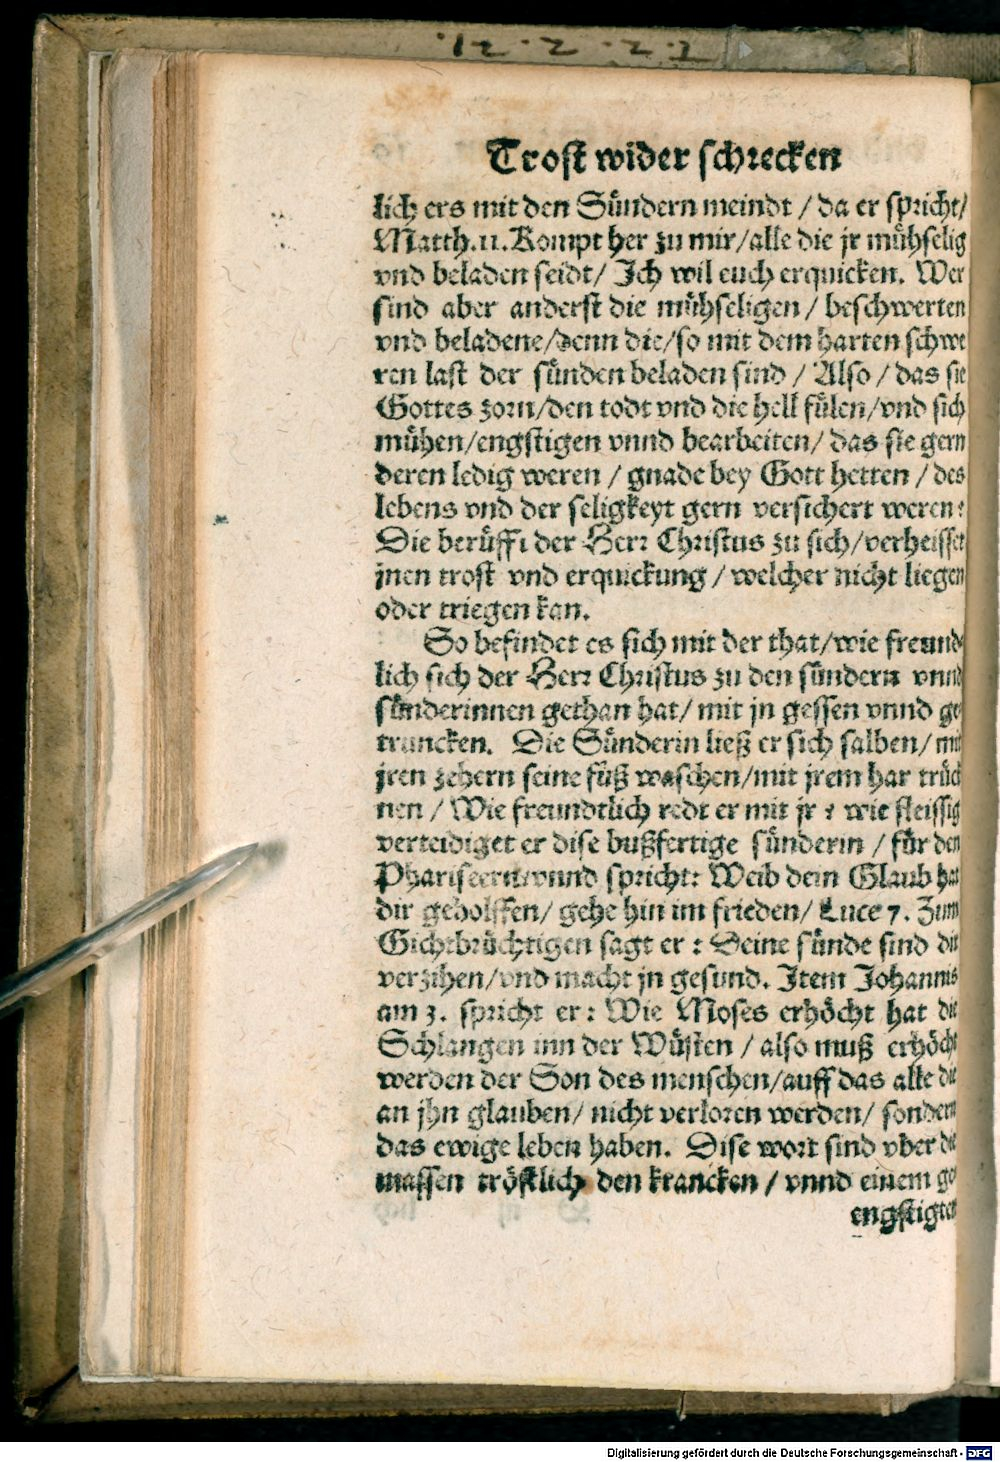 Trost wider schrecken
lich ers mit den Sündern meindt / da er spricht/
Matth.11. Kompt her zu mir/alle die jr mühselig
vnd beladen seidt/ Ich wil euch erquicken. Wer
sind aber anderst die mühseligen / beschwerten
vnd beladene/denn die/so mit dem harten schwe
ren last der sünden beladen sind / Also / das sie
Gottes zorn/den todt vnd die hell fülen/vnd sich
mühen/engstigen vnnd bearbeiten/ das sie gern
deren ledig weren / gnade bey Gott hetten / des
lebens vnd der seligkeyt gern versichert weren?
Die berüfft der Herr Christus zu sich/verheisset
jnen trost vnd erquickung / welcher nicht liegen
oder triegen kan.
So befindet es sich mit der that/wie freund-
lich sich der Herr Christus zu den sündern vnnd
sünderinnen gethan hat/ mit jn gessen vnnd ge
truncken. Die Sünderin ließ er sich salben/ mit
jren zehern seine füß waschen/mit jrem har trück
nen / Wie freundtlich redt er mit jr ? wie fleissig
verteidiget er dise bußfertige sünderin / für den
Phariseern/vnnd spricht: Weib dein Glaub hat
dir geholffen/ gehe hin im frieden/ Luce 7. Zum
Gichtbrüchtigen sagt er : Deine sünde sind dir
verzihen/vnd macht jn gesund. Item Johannis
am 3. spricht er : Wie Moses erhöcht hat die
Schlangen inn der Wüsten / also muß erhöcht
werden der Son des menschen/auff das alle die
an jhn glauben/ nicht verloren werden/ sondern
das ewige leben haben. Dise wort sind vber die
massen tröstlich den krancken / vnnd einem ge
engstigten
Digitalisierung gefördert durch die Deutsche Forschungsgemeinschaft - DFG